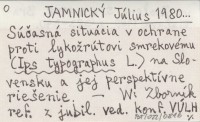 O
JAMNICKÝ Július 1980...
Súčasná situácia v ochrane
proti lykožrútovi smrekovému
(Ips typographus L.) na Slo-
vensku a jej perspektívne
riešenie. — W: Zborník
ref. z jubil. ved. konf. VÚLH